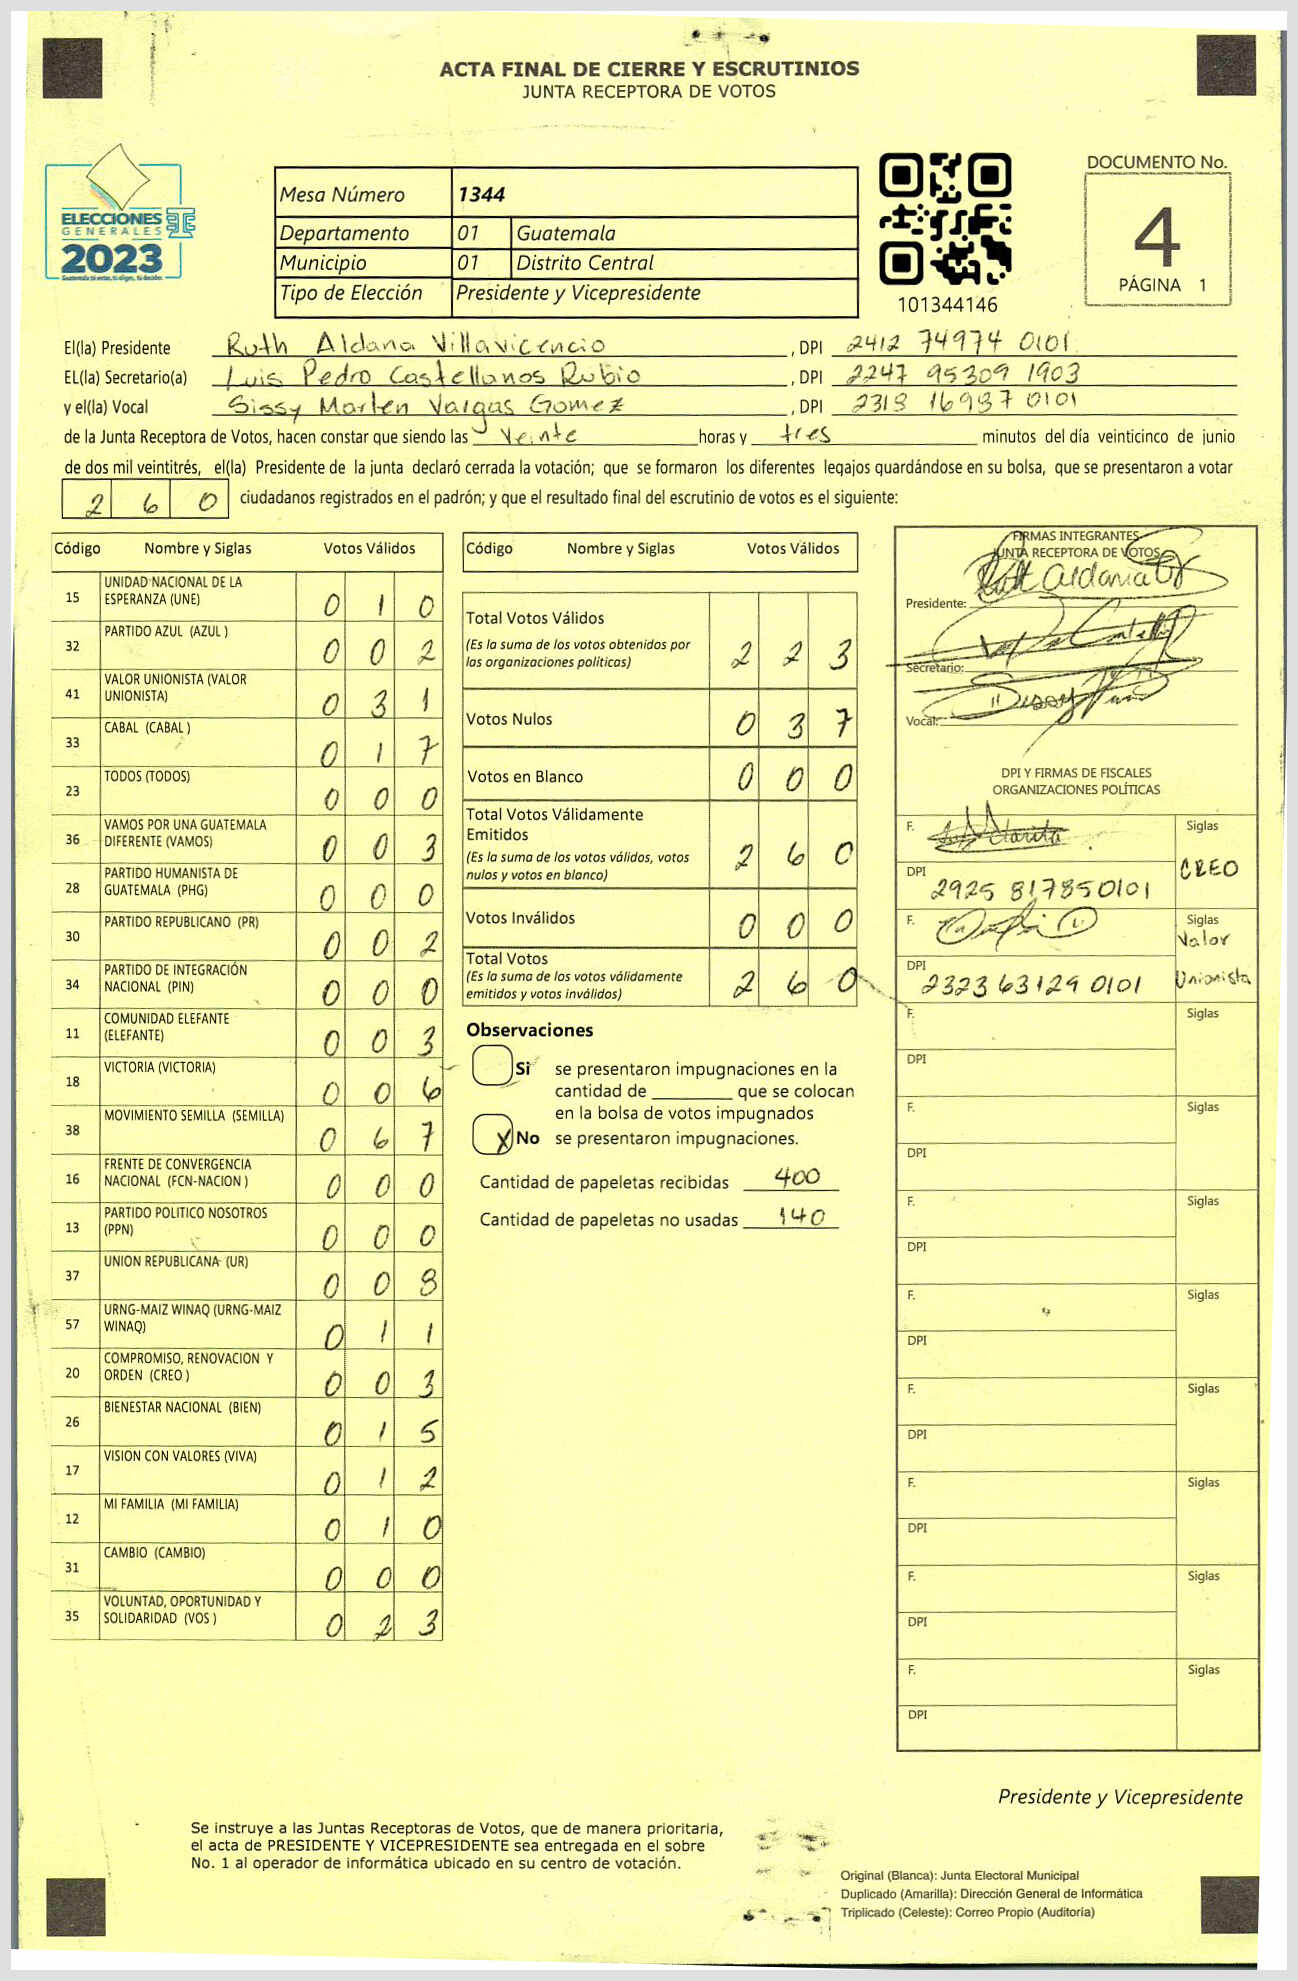 ACTA FINAL DE CIERRE Y ESCRUTINIOS
JUNTA RECEPTORA DE VOTOS
ELECCIONES
GENERALES
2023
Mesa Número 1344
Departamento 01 Guatemala
Municipio 01 Distrito Central
Tipo de Elección Presidente y Vicepresidente
101344146
DOCUMENTO No.
4
PÁGINA 1
El(la) Presidente Ruth Aldana Villavicencio , DPI 2412 74974 0101
EL(la) Secretario(a) Luis Pedro Castellanos Rubio , DPI 2247 95309 1903
y el(la) Vocal Sissy Marlen Vargas Gomez , DPI 2318 16987 0101
de la Junta Receptora de Votos, hacen constar que siendo las veinte horas y tres minutos del día veinticinco de junio
de dos mil veintitrés, el(la) Presidente de la junta declaró cerrada la votación; que se formaron los diferentes legajos quardándose en su bolsa, que se presentaron a votar
2 6 0 ciudadanos registrados en el padrón; y que el resultado final del escrutinio de votos es el siguiente:
Código Nombre y Siglas Votos Válidos
15 UNIDAD NACIONAL DE LA ESPERANZA (UNE) 0 1 0
32 PARTIDO AZUL (AZUL ) 0 0 2
41 VALOR UNIONISTA (VALOR UNIONISTA) 0 3 1
33 CABAL (CABAL ) 0 1 7
23 TODOS (TODOS) 0 0 0
36 VAMOS POR UNA GUATEMALA DIFERENTE (VAMOS) 0 0 3
28 PARTIDO HUMANISTA DE GUATEMALA (PHG) 0 0 0
30 PARTIDO REPUBLICANO (PR) 0 0 2
34 PARTIDO DE INTEGRACIÓN NACIONAL (PIN) 0 0 0
11 COMUNIDAD ELEFANTE (ELEFANTE) 0 0 3
18 VICTORIA (VICTORIA) 0 0 6
38 MOVIMIENTO SEMILLA (SEMILLA) 0 6 7
16 FRENTE DE CONVERGENCIA NACIONAL (FCN-NACION ) 0 0 0
13 PARTIDO POLITICO NOSOTROS (PPN) 0 0 0
37 UNION REPUBLICANA (UR) 0 0 8
57 URNG-MAIZ WINAQ (URNG-MAIZ WINAQ) 0 1 1
20 COMPROMISO, RENOVACION Y ORDEN (CREO ) 0 0 3
26 BIENESTAR NACIONAL (BIEN) 0 1 5
17 VISION CON VALORES (VIVA) 0 1 2
12 MI FAMILIA (MI FAMILIA) 0 1 0
31 CAMBIO (CAMBIO) 0 0 0
35 VOLUNTAD, OPORTUNIDAD Y SOLIDARIDAD (VOS ) 0 2 3
Código Nombre y Siglas Votos Válidos
Total Votos Válidos
(Es la suma de los votos obtenidos por
las organizaciones políticas) 2 2 3
Votos Nulos 0 3 7
Votos en Blanco 0 0 0
Total Votos Válidamente
Emitidos
(Es la suma de los votos válidos, votos
nulos y votos en blanco) 2 6 0
Votos Inválidos 0 0 0
Total Votos
(Es la suma de los votos válidamente
emitidos y votos inválidos) 2 6 0
Observaciones
Si se presentaron impugnaciones en la
cantidad de ________ que se colocan
en la bolsa de votos impugnados
X No se presentaron impugnaciones.
Cantidad de papeletas recibidas 400
Cantidad de papeletas no usadas 140
FIRMAS INTEGRANTES
JUNTA RECEPTORA DE VOTOS
Presidente: Ruth Aldana
Secretario:
Vocal: Sissy
DPI Y FIRMAS DE FISCALES
ORGANIZACIONES POLÍTICAS
F. Siglas
CREO
DPI 2925 81785 0101
F. Siglas
Valor
Unionista
DPI 2323 63129 0101
F. Siglas
DPI
F. Siglas
DPI
F. Siglas
DPI
F. Siglas
DPI
F. Siglas
DPI
F. Siglas
DPI
F. Siglas
DPI
F. Siglas
DPI
Presidente y Vicepresidente
Se instruye a las Juntas Receptoras de Votos, que de manera prioritaria,
el acta de PRESIDENTE Y VICEPRESIDENTE sea entregada en el sobre
No. 1 al operador de informática ubicado en su centro de votación.
Original (Blanca): Junta Electoral Municipal
Duplicado (Amarilla): Dirección General de Informática
Triplicado (Celeste): Correo Propio (Auditoría)